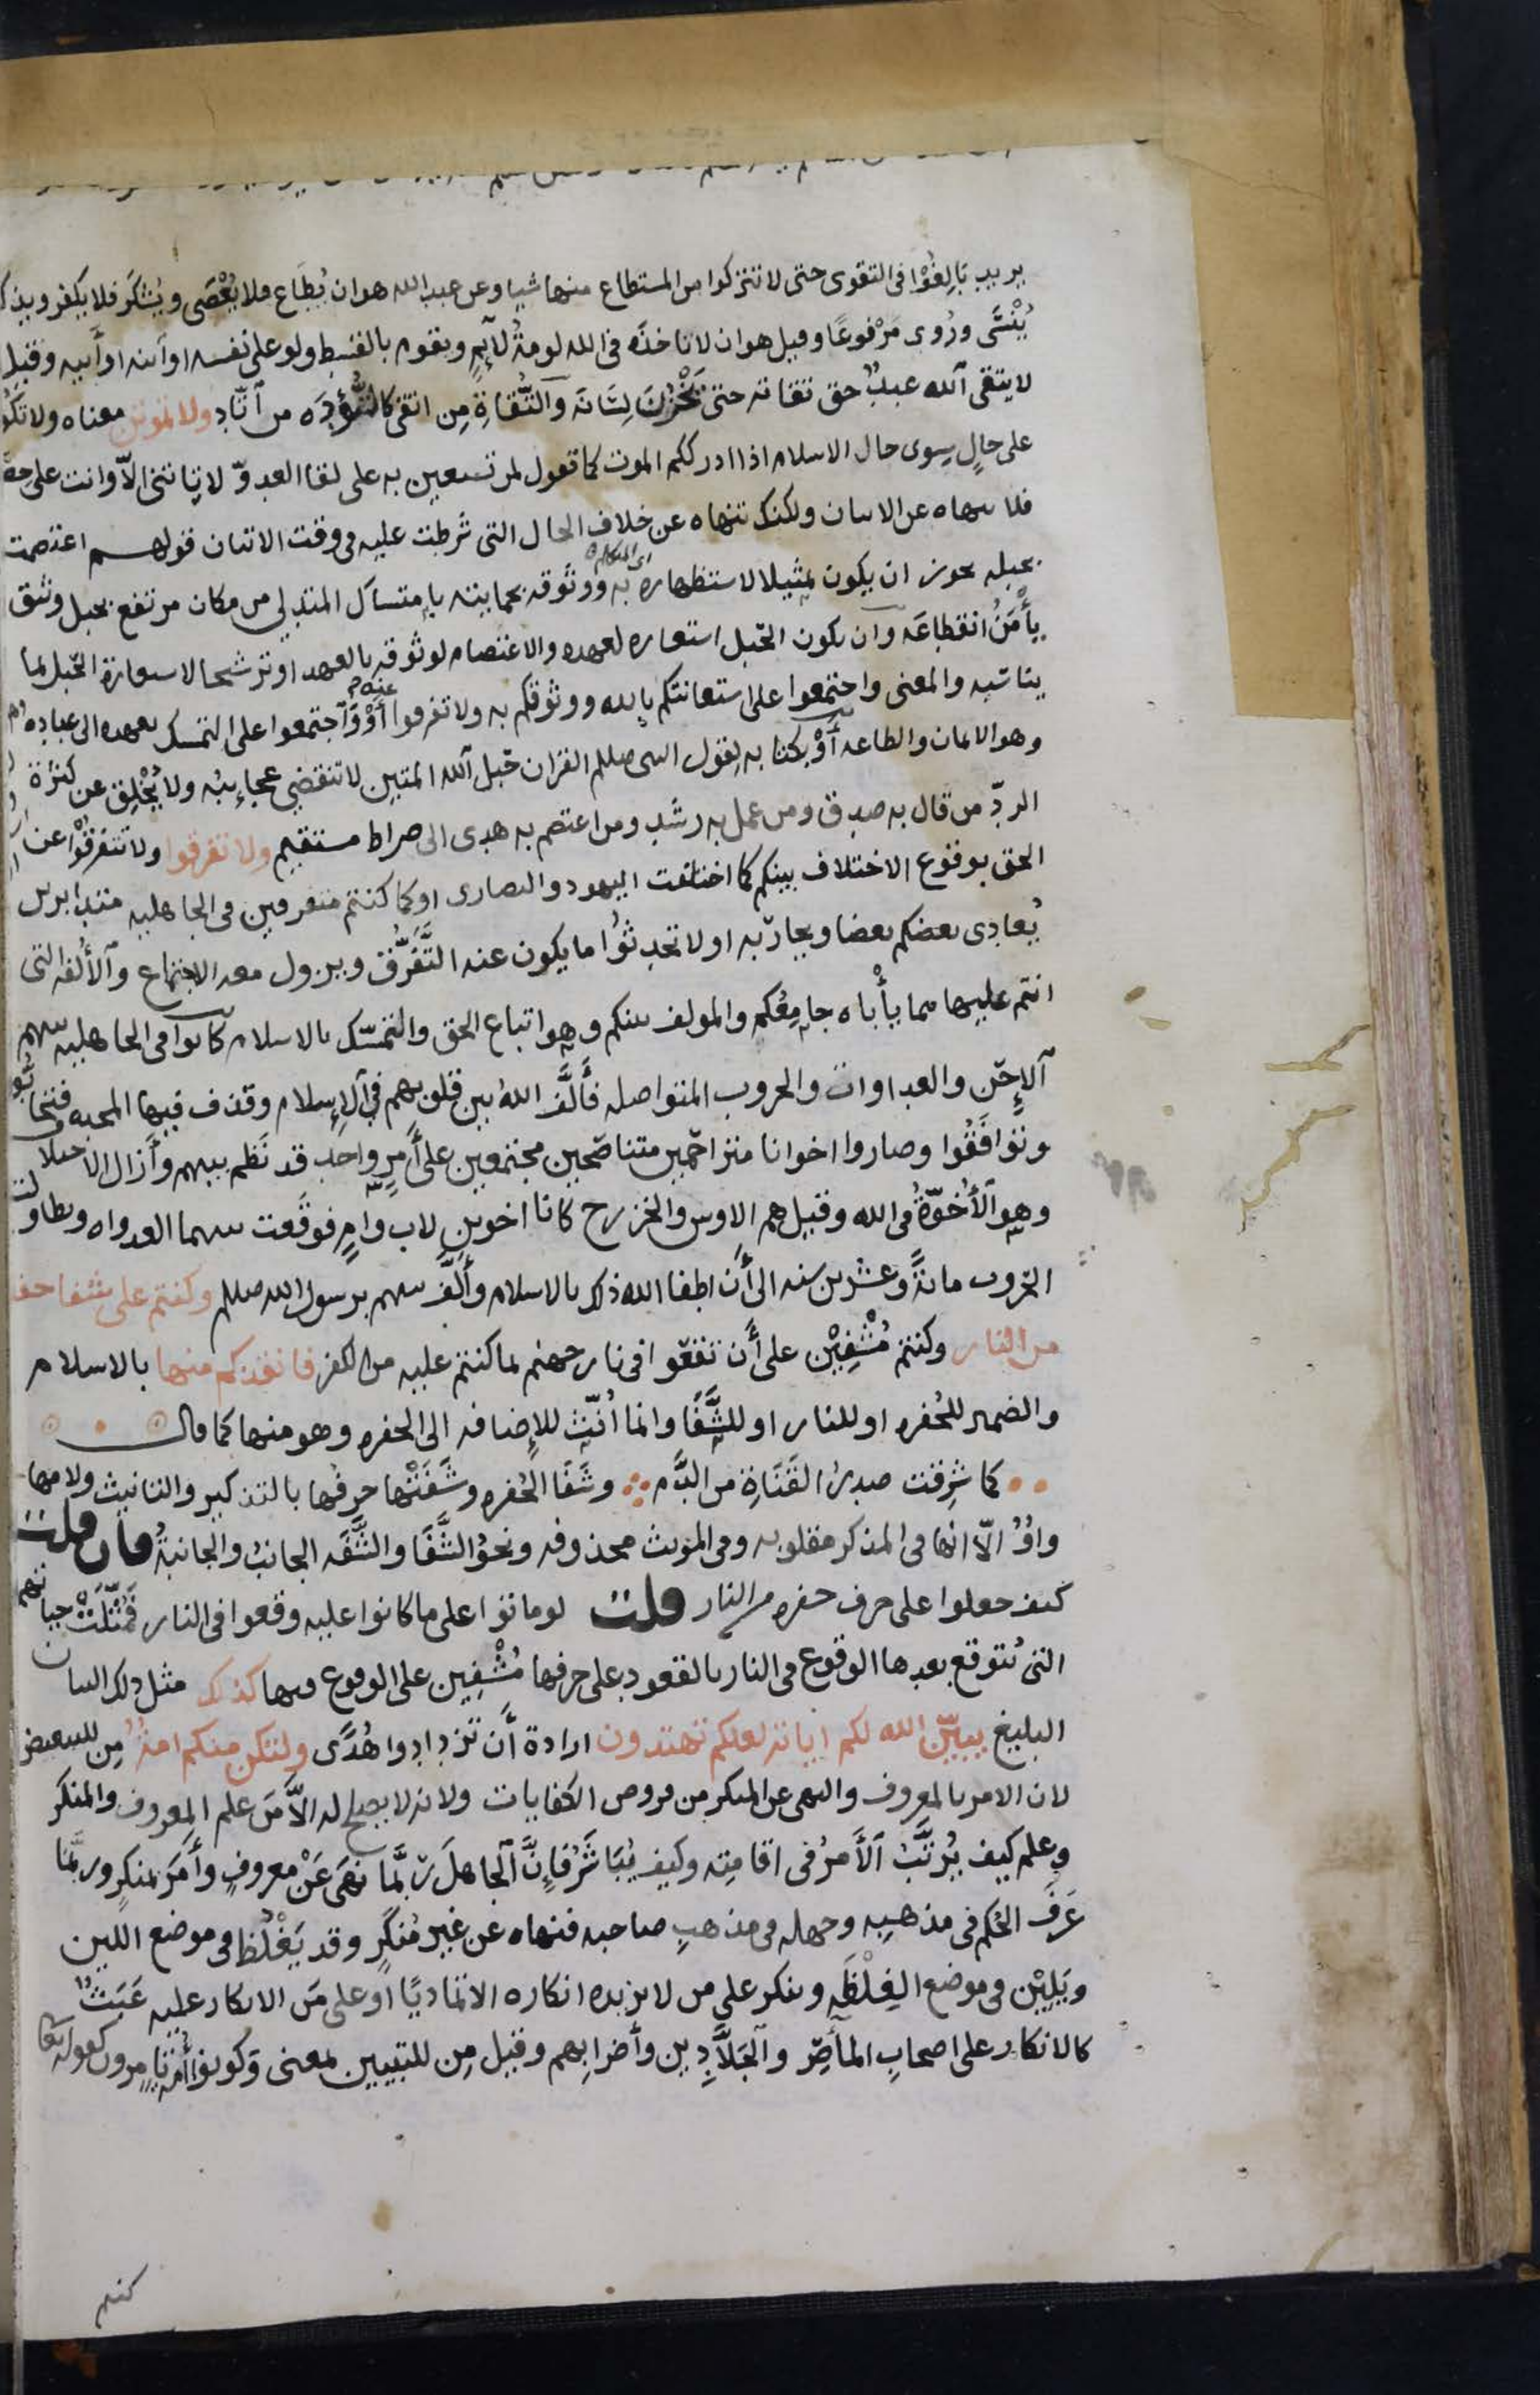 يريد بَالِغُوْا فى التقوى حتى لا تتركوا من المستطاع منها شيا وعن عبد الله هو ان يُطَاع فلا يُعْصَى ويُشكَر فلا يكفر ويذكر
يُنْسَى ورُوى مَرْفوعًا وقيل هو ان لا تاخذه فى الله لومةُ لآيمٍ ويقوم بالقسط ولو على نفسه او ابنه او أَبيه وقيل
لا يتقى الله عبدٌ حق تقاته حتى يَخْزُنَ لِسَانَه والتُّقَاةِ مِن اتقى كالتُّؤَدَه من آتّاد ولا تموتن معناه ولا تكو
على حالٍ سِوى حال الاسلام اذا ادرككم الموت كما تقول لمن تستعين به على لقا العدوّ لا تاتنى الاّ وانت على
فلا تنهاه عن الاتيان ولكنك تنهاه عن خلاف الحال التى شَرطت عليه فى وقت الاتيان قولهم اعتصمت
بحبله يجوز ان يكون تمثيلا لاستظهاره به ووثوقه بحمايته بامتساك المتدلى من مكان مرتفع بحبل وثيق
يأْمَنُ انقطاعَه وان يكون الحَبل استعاره لعهده والاعتصام لوثوقه بالعهد او ترشيحا لاستعارة الحَبل لما
يناسبه والمعنى واجتمعوا على استعانتكم بالله ووثوقكم به ولا تفرقوا عنه أَوْ وَاجتمعوا على التمسك بعهده الى عباده
وهو الايمان والطاعه أَوْ بكتابه لِقول النبى صللم القران حَبل الله المتين لا تنقضى عجايبُه ولا يَخْلِق عن كثرة
الردّ من قال به صدق ومن عمل به رشد ومن اعتصم به هدى الى صراط مستقيم ولا تفرقوا ولا تتفرقُوْا عن
الحق بوقوع الاختلاف بينكم كما اختلفت اليهود والنصارى او كما كنتم متفرقين فى الجاهليه متدابرين
يُعادِى بعضكم بعضا ويحاربه او لا تحدِثُوا ما يكون عنه التَّفَرُّق ويزول معه الاجتماع والأُلفه التى
انتم عليها مما يأْباه جامِعُكم والمولف بينكم وهو اتباع الحق والتمسّك بالاسلام كانوا فى الجاهليه بينهم
الإِحَن والعداوات والحروب المتواصله فأَلَّف اللهُ بين قلوبهم فى الإسلام وقذف فيها المحبه فتحابُّو
وتَوافَقُوا وصاروا اخوانا متراحمين متناصحين مجتمعين على أَمرٍ واحد قد نَظم بينهم وأَزال الاختلا
وهو الأُخوّةُ فى الله وقيل هم الاوس والخزرج كانا اخوين لاب وامٍ فوقَعت بينهما العداوه وتطاولت
الحروب مائةً وعشرين سنه الى أَن اطفا الله ذلك بالاسلام وأَلَّف بينهم برسول الله صللم وكنتم على شفا حفـ
من النار وكنتم مُشْفِيْن على أَن تقعوا فى نار جهنم لما كنتم عليه من الكفر فانقذكم منها بالاسلام
والضمير للحُفره او للنار او للشَّفَا وانما أُنّث للإضافه الى الحفره وهو منها كما قال
كما شرِقت صدرُ القَنَاةِ من الدَّم وشَفَا الحُفره وشَفَتُها حرفُها بالتذكير والتانيث ولامها
واوٌ الاّ انها فى المذكر مقلوبه وفى المونث محذوفه ونحوُ الشَّفَا والشَّفَه الجانبُ والجانبةُ فان قلت
كيف جعلوا على حرف حفره من النار قلت لو ماتوا على ما كانوا عليه وقعوا فى النار فَمُثِّلَتْ حياتهم
التى يُتوقع بعدها الوقوع فى النار بالقعود على حرفها مُشْفِين على الوقوع فيها كذلك مثل ذلك البيان
البليغ يبيّن الله لكم اياته لعلكم تهتدون ارادة أَن تزدادوا هُدًى ولتكن منكم امةٌ مِن للتبعيض
لان الامر بالمعروف والنهى عن المنكر من فروض الكفايات ولانه لا يصلح له الاَّ مَن علم المعروف والمنكر
وعلم كيف يُرتِّبُ الأَمرُ فى اقامته وكيف يُبَاشَرُ فإِنَّ الجاهلَ ربَّما نهَى عَنْ معروفٍ وأَمَر بمنكرٍ وربَّما
عَرَف الحُكم فى مذهبِه وجهله فى مذهبِ صاحبه فنهاه عن غير مُنكَرٍ وقد يَغْلُظ فى موضع اللين
ويَلِيْن فى موضع الغِلْظَه وينكر على من لا يزيده انكاره الا تماديًا او على مَن الانكار عليه عَبَثٌ
كالانكار على اصحابِ المأصِر والجَلاَّدِين وأَضرابِهم وقيل مِن للتبيين بمعنى وكونوا أُمّه تامرون كقوله تعا
كنتم